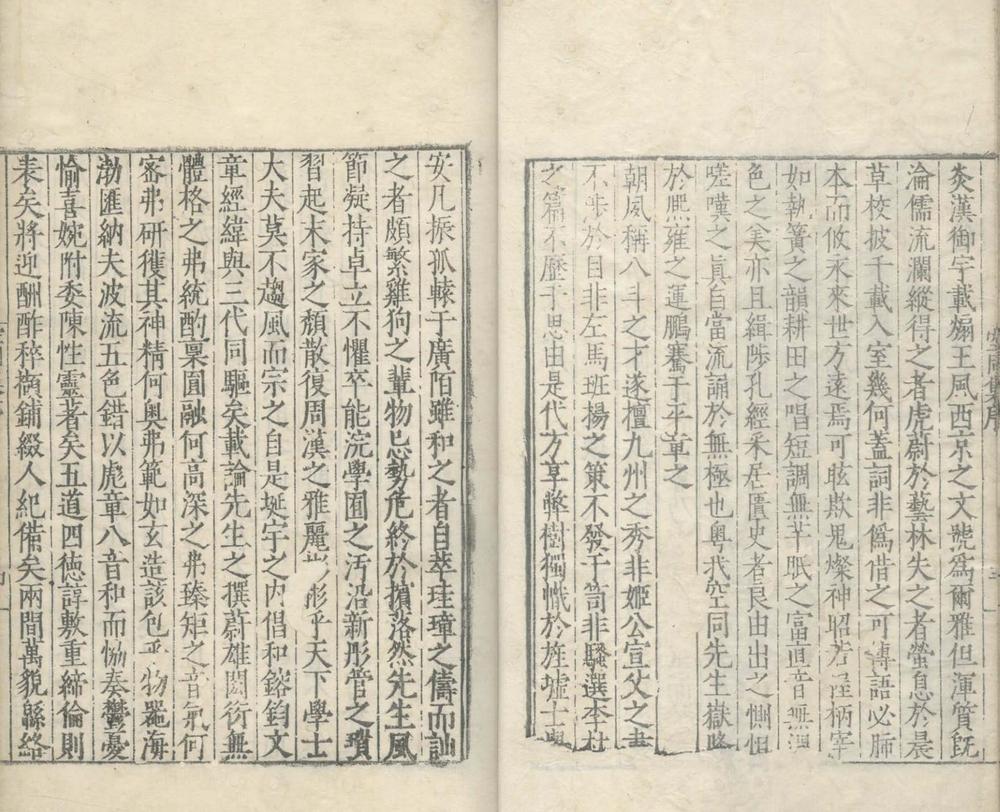 炎漢御宇載煽王風西京之文號爲爾雅但渾質旣
淪儒流瀾縱得之者虎蔚於藝林失之者螢息於晨
草校披千載入室幾何蓋詞非爲借之可傳語必肺
本而攸永來世方遠焉可眩欺鬼燦神昭若徑柄宰
如執簧之韻耕田之唱短調無羊眠之富直音無
色之美亦且緝陟孔經采居匱史者良由出之惻怛
嗟嘆之眞自當流誦於無極也粤我空同先生嶽降
於熙雍之運鵬騫于平章之
朝夙稱八斗之才遂擅九州之秀非姬公宣父之書
不涉於目非左馬班揚之策不發于笥非騷選李杜
之篇不歷于思由是代方享弊樹獨幟於旌墟士
安凡振孤轅于廣陌雖和之者自萃珪璋之儔而訕
之者頗繁雞狗之輩物忌勢危終於擯落然先生風
節凝持卓立不懼卒能浣學囿之汚沿新彤管之瓆
習起末家之頹散復周漢之雅麗彬彬乎天下學士
大夫莫不趨風而宗之自是埏宇之内倡和鎔鈞文
章經緯與三代同驅矣載論先生之撰蔚雄閎衍無
體格之弗統酌稟圓融何高深之弗臻矩之音氣何
密弗研獲其神精何奥弗範如玄造該包乎物罷海
渤匯納夫波流五色錯以彪章八音和而恊奏鬱憂
愉喜婉附委陳性靈者矣五道四徳諄敷重締倫則
表矣將迎酬酢稡擷鋪綴人紀備矣兩間萬貌緜絡
空同集序